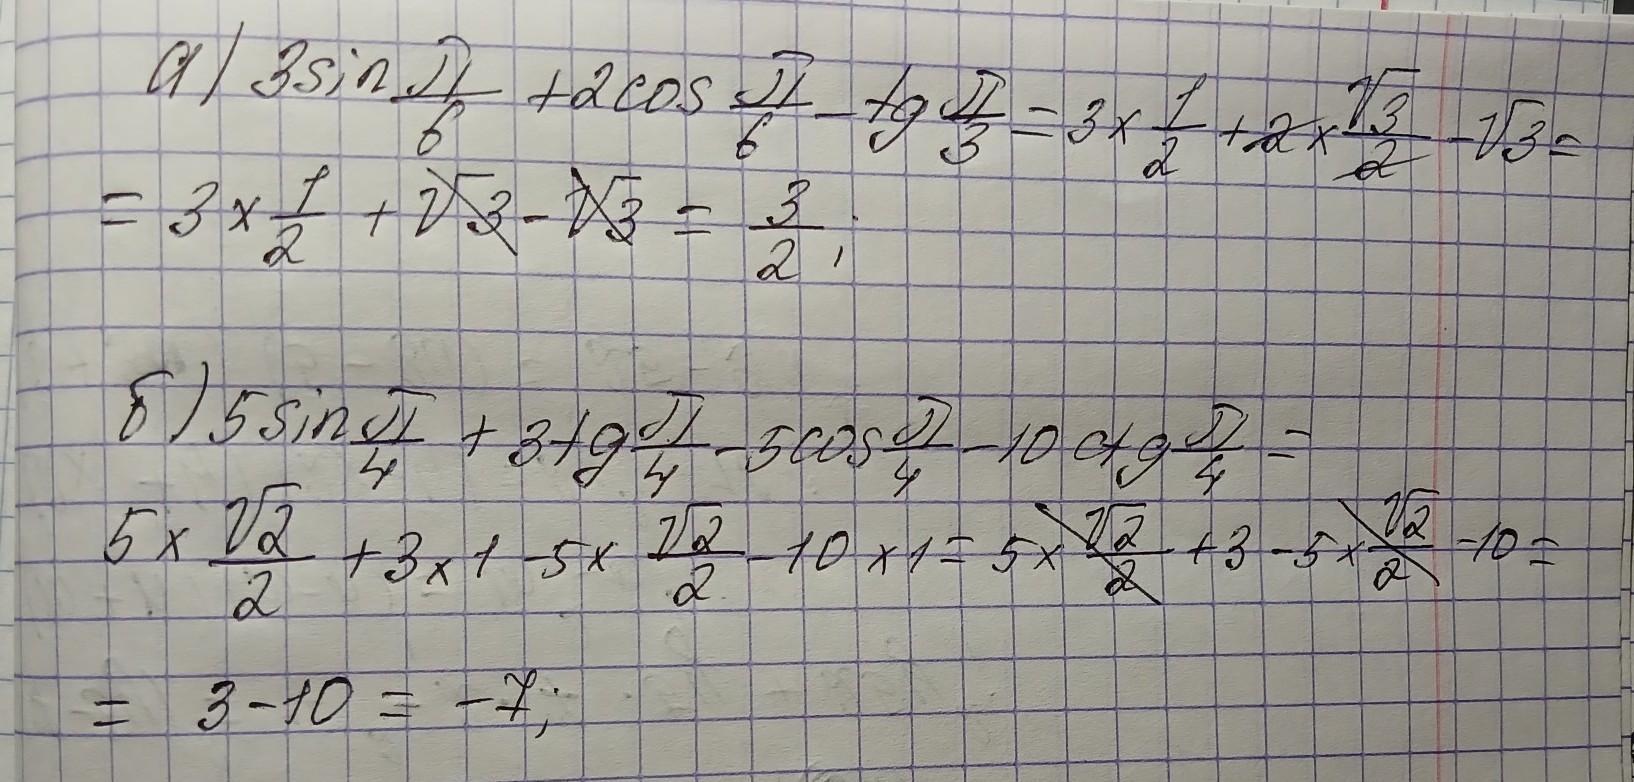 а) 3sin π/6 + 2cos π/6 - tg π/3 = 3 × 1/2 + 2 × √3/2 - √3 =
= 3 × 1/2 + √3 - √3 = 3/2;
б) 5sin π/4 + 3tg π/4 - 5cos π/4 - 10 ctg π/4 =
5 × √2/2 + 3 × 1 - 5 × √2/2 - 10 × 1 = 5 × √2/2 + 3 - 5 × √2/2 - 10 =
= 3 - 10 = -7;